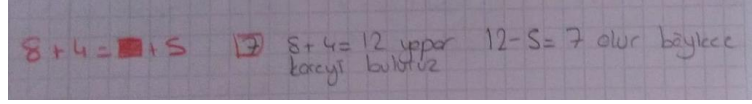 8+4=■+5 [7] 8+4=12 yapar 12-5=7 olur böylece
kareyi buluruz